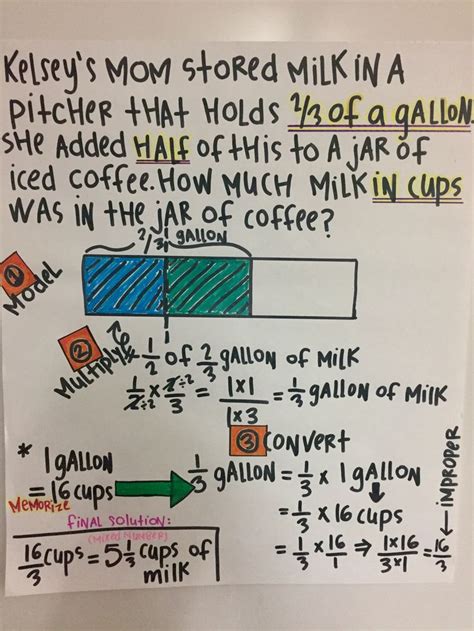 Kelsey's MOM Stored MILK IN A
PITCHER THAT HOLDS 2/3 of a GALLON.
SHE ADDED HALF OF THIS TO A JAR OF
iced coffee. How MUCH MILK IN CUPS
WAS IN THE JAR OF COFFEE?
2/3 GALLON
1 Model
2 Multiply 1/2 of 2/3 GALLON OF MILK
1/2÷2 × 2÷2/3 = 1×1/1×3 = 1/3 GALLON OF MILK
3 CONVERT
* 1 GALLON
= 16 CUPS
MEMORIZE
1/3 GALLON = 1/3 × 1 GALLON
= 1/3 × 16 CUPS
= 1/3 × 16/1 ⇒ 1×16/3×1 = 16/3
← IMPROPER
FINAL SOLUTION:
(MIXED NUMBER)
16/3 CUPS = 5 1/3 CUPS OF
MILK